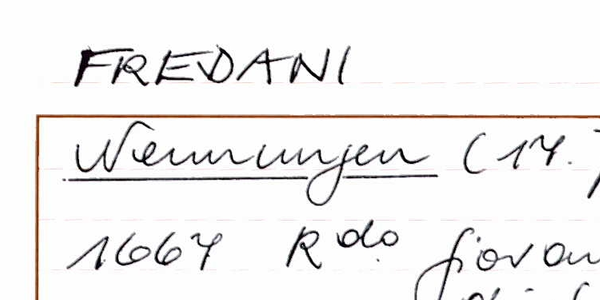 FREDANI
Nennungen (17.)
1667 R do Giovan